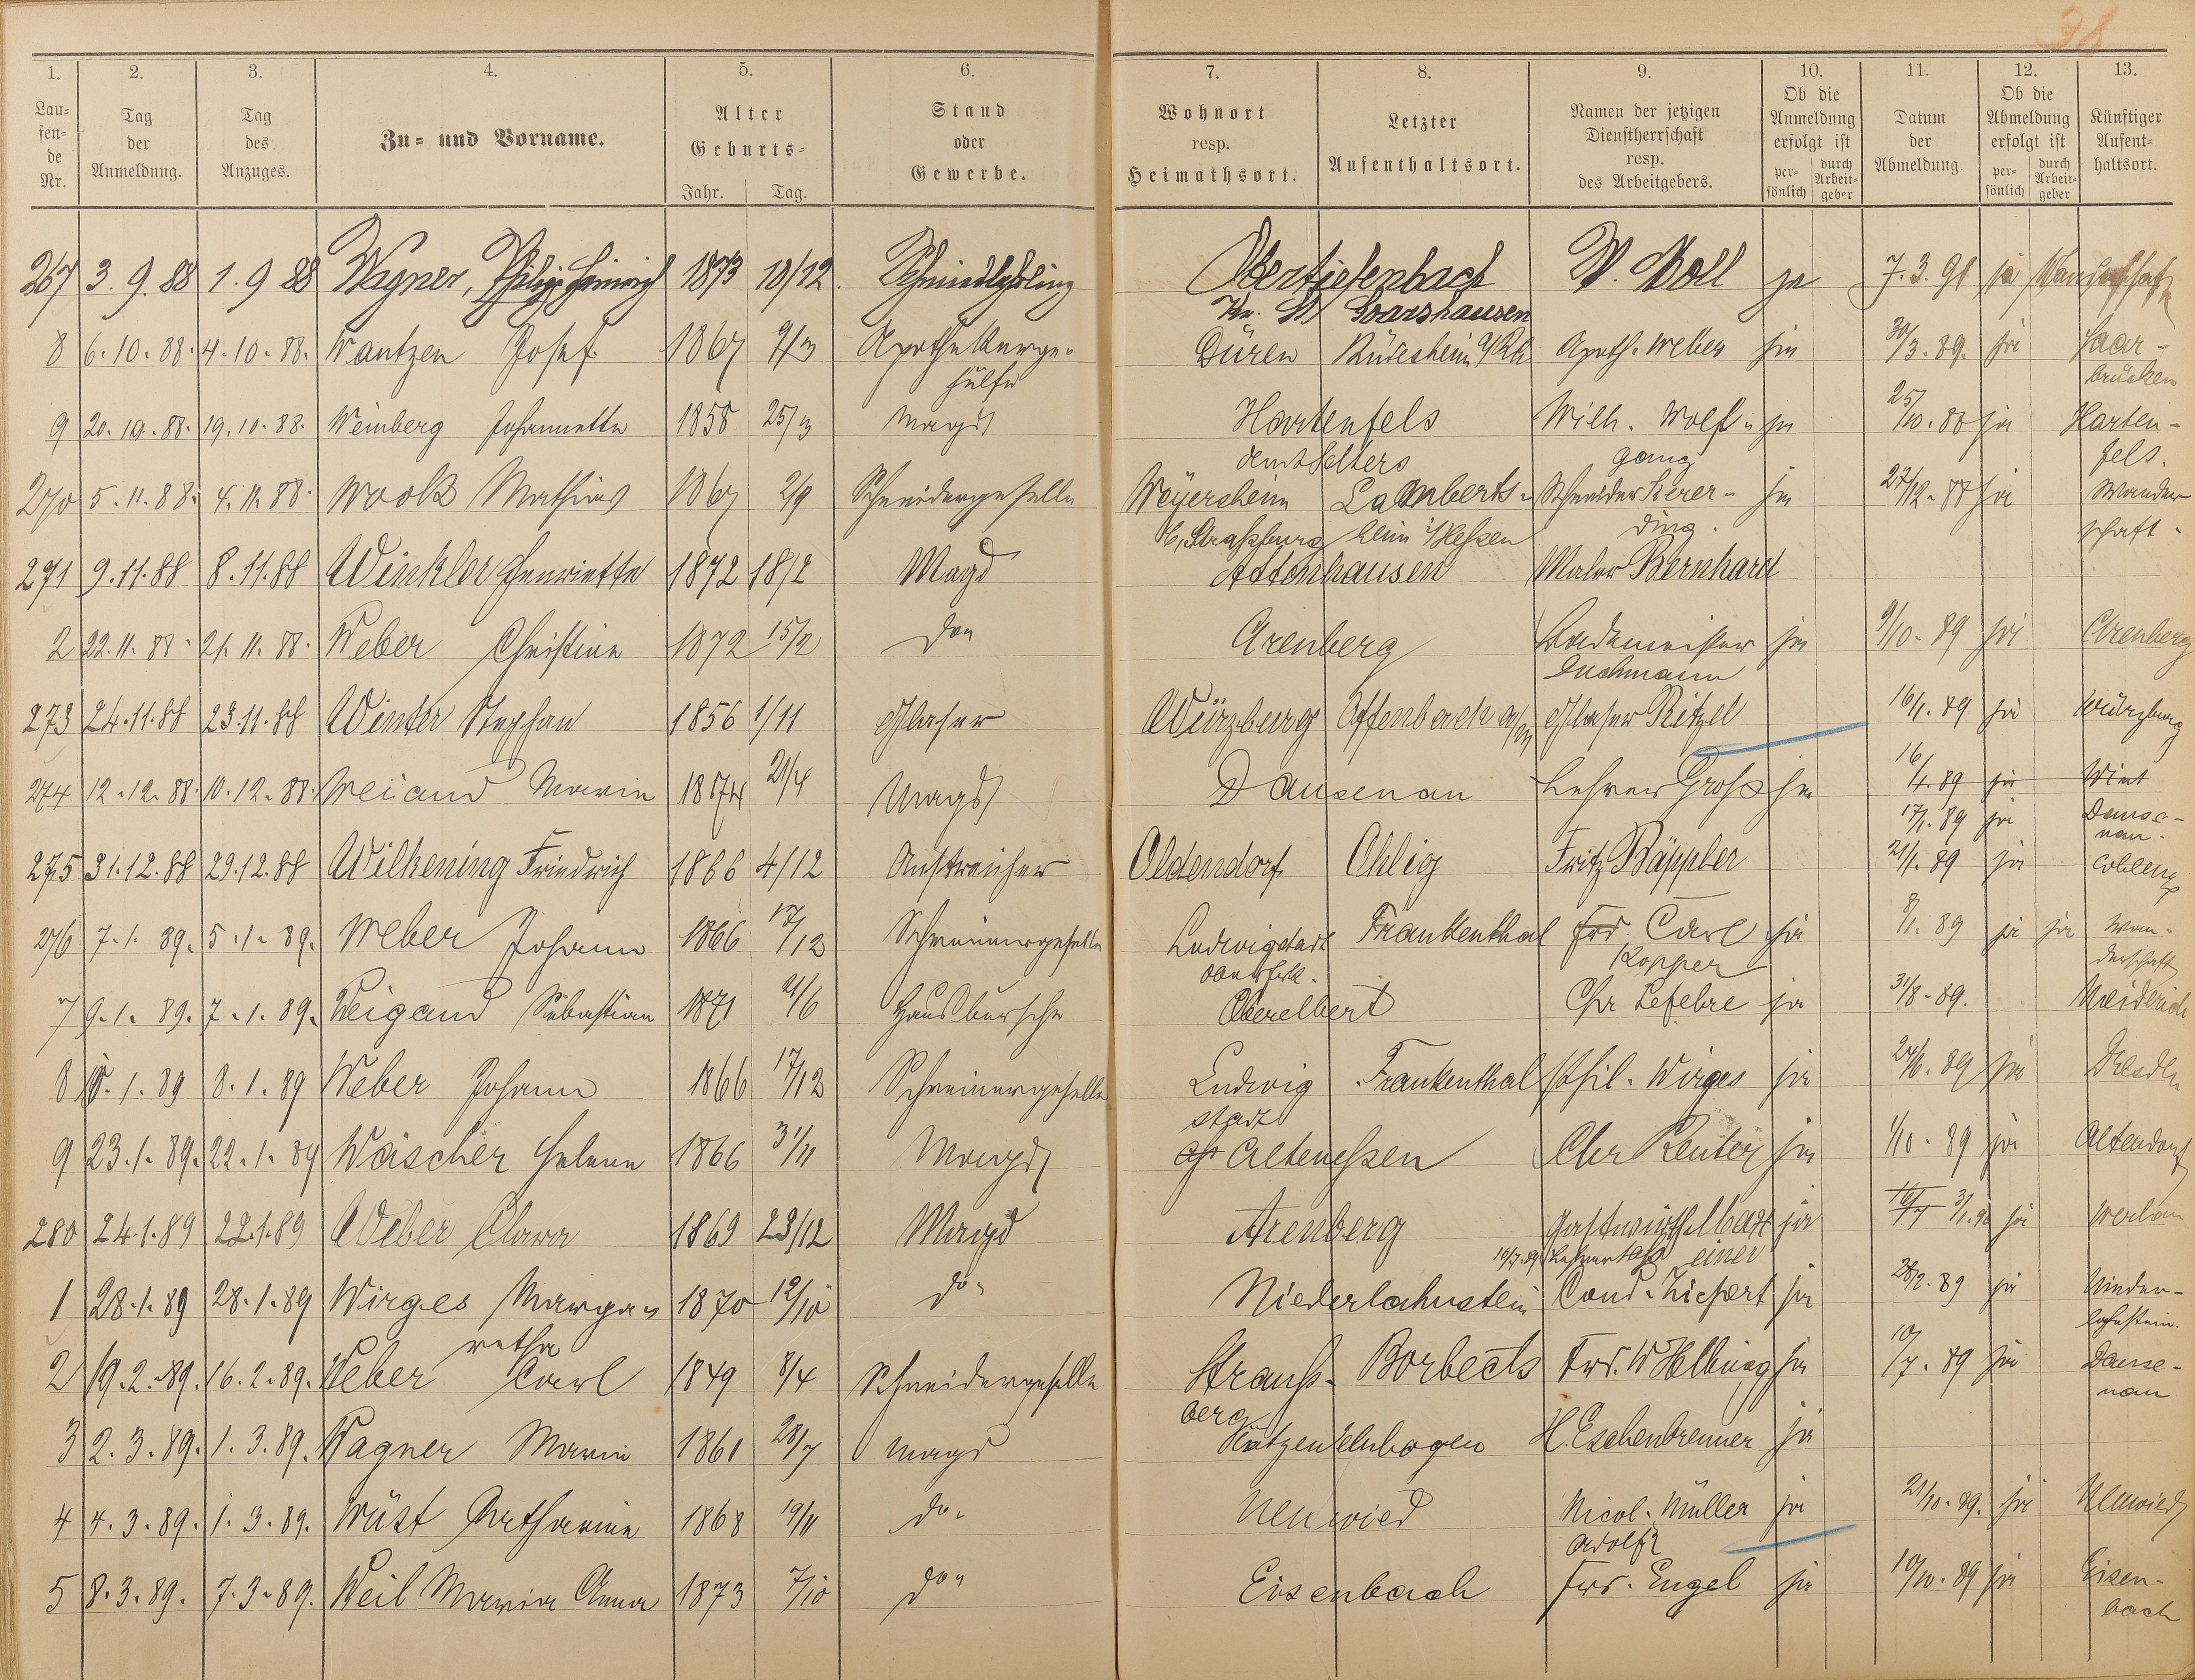 38
1. 2. 3. 4. 5. 6. 7. 8. 9. 10. 11. 12. 13.
Laufende Nr. Tag der Anmeldung. Tag des Anzuges. Zu- und Vorname. Alter Geburts- Jahr. Tag. Stand oder Gewerbe. Wohnort resp. Heimathsort. Letzter Aufenthaltsort. Namen der jetzigen Dienstherrschaft resp. des Arbeitgebers. Ob die Anmeldung erfolgt ist persönlich durch Arbeitgeber Datum der Abmeldung. Ob die Abmeldung erfolgt ist persönlich durch Arbeitgeber Künftiger Aufenthaltsort.
267 3.9.88 1.9 88 Wagner, Philipp Heinrich 1873 10/12 Schmiedlehrling Obertiefenbach W. Noll ja 7.3.91 ja Wanderschaft
Kr. St Goarshausen
8 6.10.88. 4.10.88. Wantzen Josef 1867 9/3 Apothekerge- Düren Rüdesheim a/Rh Apoth. Weber ja 30/3.89. ja Saar-
hülfe brücken
9 20.10.88. 19.10.88. Weinberg Johannette 1858 25/3 Magd Hartenfels Wilh. Wolf- ja 25/10.88 ja Harten-
Amt Selters gang fels.
270 5.11.88. 4.11.88. Wolk Mathias 1867 2/9 Schneidergeselle Weyersheim Lamberts- Schneider ja 27/12.88 ja Wander-
Strassburg heim i/Hessen ding. schaft.
271 9.11.88 8.11.88 Winkler Henriette 1872 18/2 Magd Attenhausen Maler Bernhard
2 22.11.88. 21.11.88. Weber Christine 1872 15/2 do Arenberg Bademeister ja 9/10.89 ja Arenberg
Buchmann
273 24.11.88 23.11.88 Winter Stephan 1856 1/11 Glaser Würzburg Offenbach a/M Glaser Ritzel 16/1.89 ja Würzburg
274 12.12.88. 10.12.88. Weiand Maria 1874 21/4 Magd Dausenau Lehrer Groß ja 16/1.89 ja Wint
17/1.89 ja Dause-
nau.
275 31.12.88 29.12.88 Wilkening Friedrich 1866 4/12 Anstreicher Oldendorf Ohlig Fritz Bäppler 21/1.89 ja Coblenz
276 7.1.89. 5.1.89. Weber Johann 1866 17/12 Schreinergeselle Ludwigstadt Frankenthal Frd. Carl ja 8/1.89 ja ja Wan-
Kopper derschaft
7 9.1.89. 7.1.89. Weigand Sebastian 1871 21/6 Hausbursche Oberelbert Chr Lefebre ja 31/8.89. Meiderich
8 1.89 8.1.89 Weber Johann 1866 17/12 Schreinergeselle Ludwig Frankenthal Phil. Wirges ja 24/6.89 ja Dresden
stadt
9 23.1.89. 22.1.89 Wäscher Helene 1866 3/11 Magd Altenessen Chr Reuter ja 1/10.89 ja Altendorf
280 24.1.89 22.1.89 Weber Clara 1869 23/12 Magd Arenberg Gastwirth Elbert ja 3/1.90 ja Werlau
1 28.1.89 28.1.89 Wirges Marga- 1870 12/10 do. Niederlahnstein Cond. Ziepert ja 28/2.89 ja Nieder-
retha lahnstein.
2 19.2.89. 16.2.89. Weber Carl 1849 8/4 Schneidergeselle Strauß- Borbeck Frd. W Helbing ja 10/7.89 ja Dause-
berg nau
3 2.3.89. 1.3.89. Wagner Maria 1861 28/7 Magd Katzenelnbogen H. Eschenbrenner ja
4 4.3.89. 1.3.89. Wüst Katharine 1868 19/11 do. Neuwied Nicol. Müller ja 21/10.89. ja Neuwied
Adolf
5 8.3.89. 7.3.89. Weil Maria Anna 1873 7/10 do Eisenbach Frd. Engel ja 10/10.89 ja Eisen-
bach